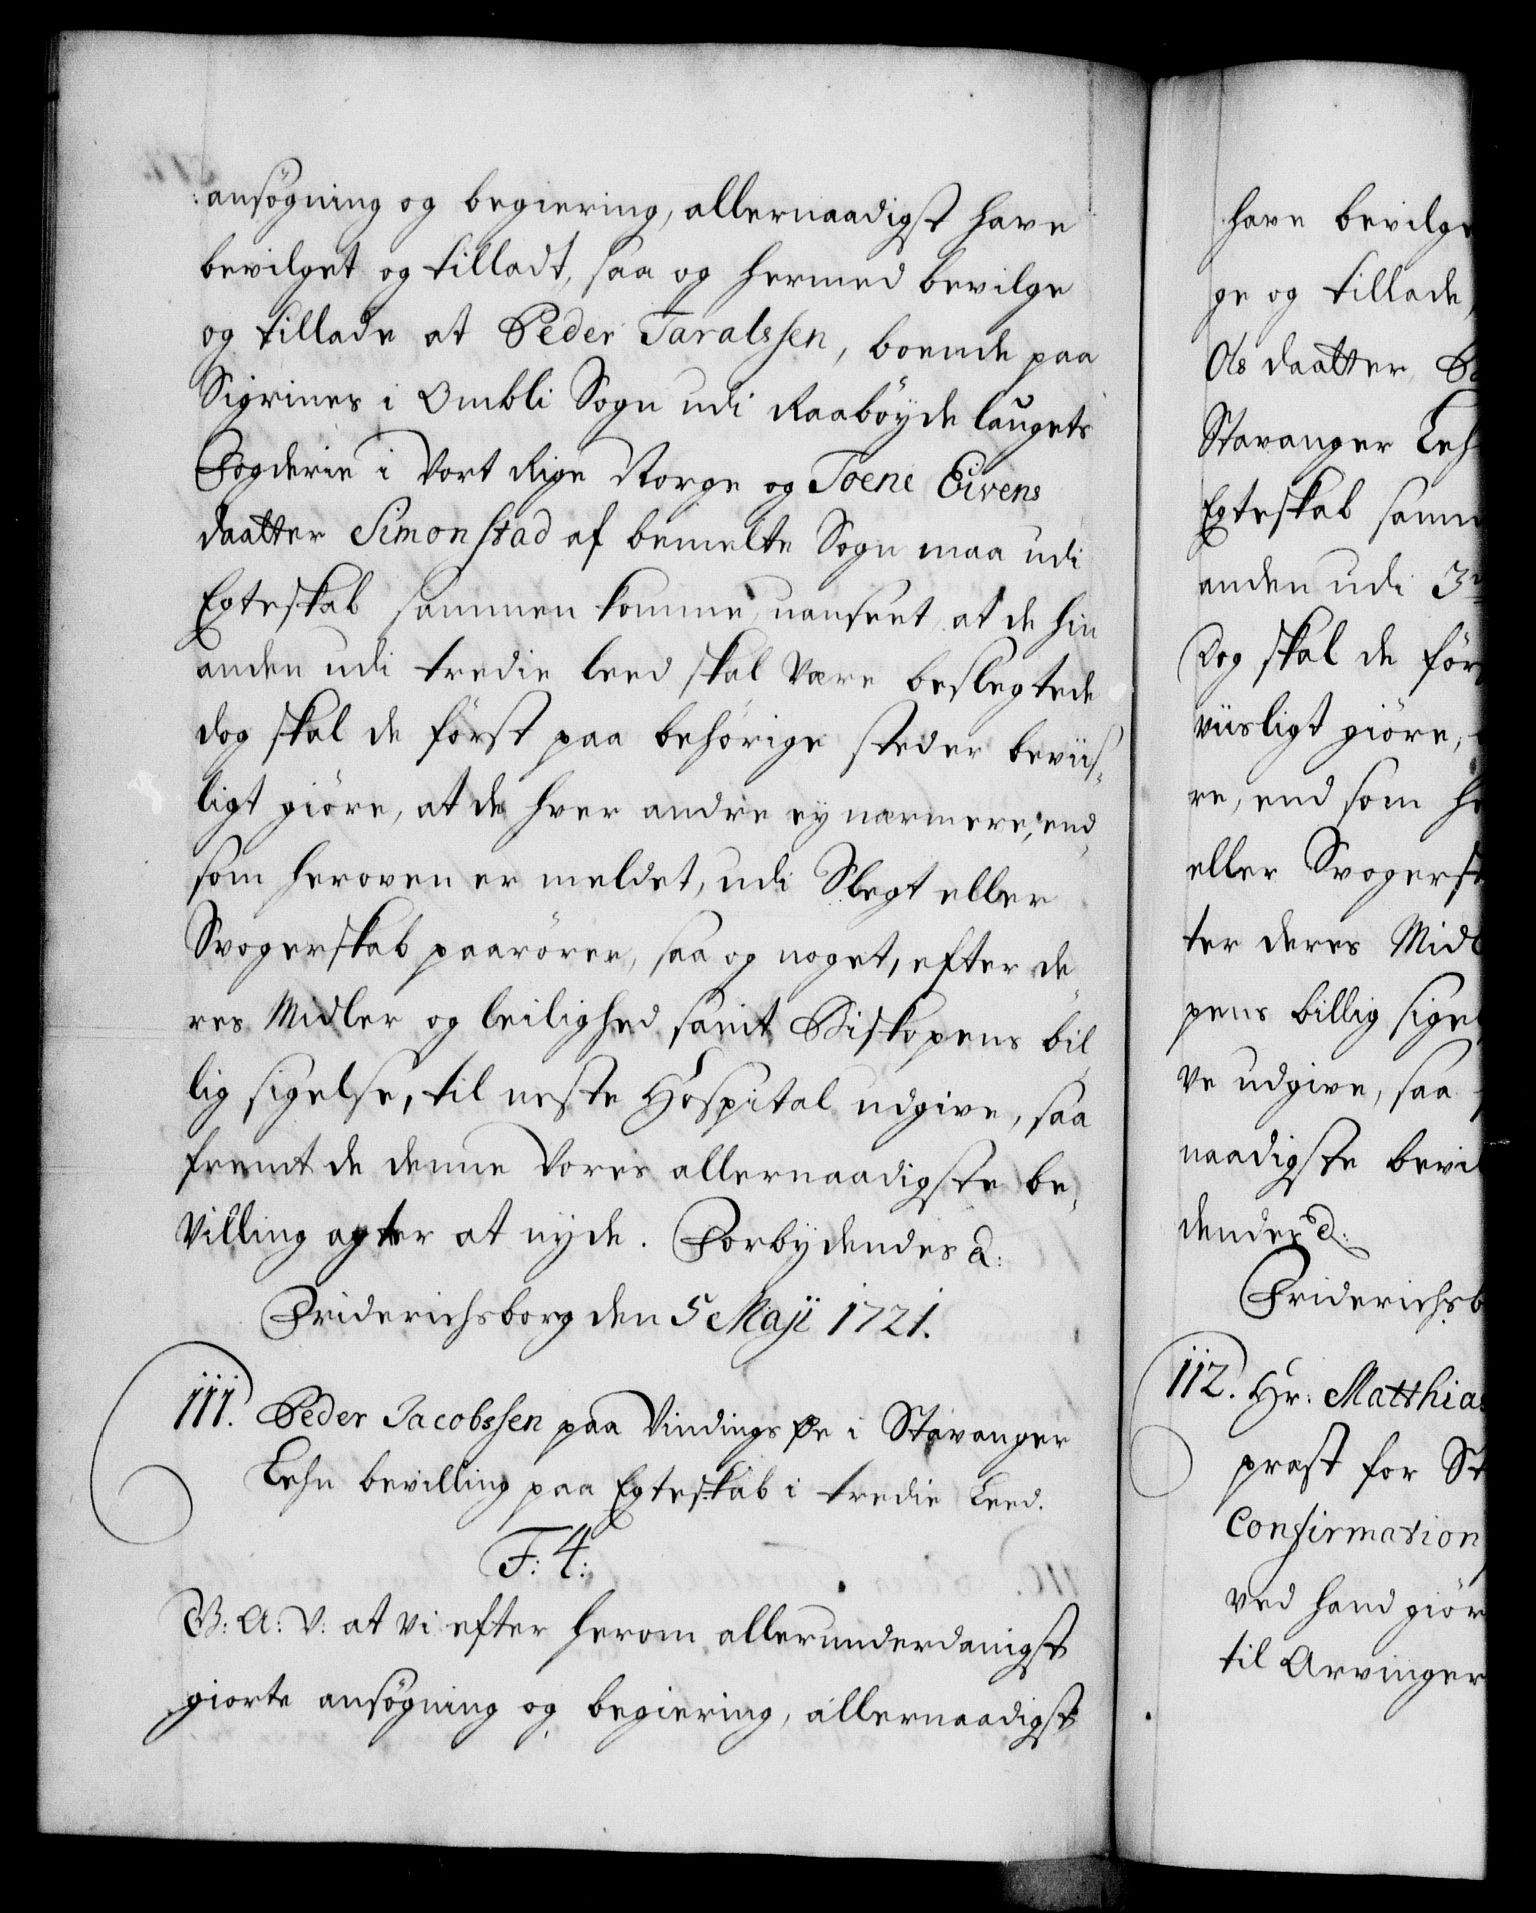 ansøgning og begiering, allernaadigst have
bevilget og tilladt, saa og hermed bevilge
og tillade at Peder Taralssen, boende paa
Sigrines i Ombli Sogn udi Raabøyde laugets
Fogderie i Vort Rige Norge og Toene Eivens
daatter Simonstad af bemelte Sogn maa udi
Egteskab sammen komme, uanseet at de hin
anden udi tredie leed skal være beslegtede
dog skal de først paa behørige steder beviis-
ligt giøre, at de hver andre ey nærmere, end
som heroven er meldet, udi Slegt eller
Svogerskab paarører, saa og noget, efter de-
res Midler og leilighed samt Biskopens bil-
lig sigelse, til neste Hospital udgive, saa
fremt de denne Vores allernaadigste be-
villing agter at nyde. Forbydendes &:
Friderichsborg den 5 Maji 1721.
111. Peder Jacobssen paa Vindings øe i Stavanger
Lehn bevilling paa Egteskab i tredie Leed.
F: 4:
G: A: V: at vi efter herom allerunderdanigst
giorte ansøgning og begiering, allernaadigst
have bevilge
ge og tillade,
Ols daatter
Stavanger Leh
Egteskab samm
anden udi 3
Dog skal de før
viisligt giøre,
re, end som he
eller Svogersk
ter deres Midl
pens billig sigel
ve udgive, saa
naadigste bevil
dendes &:
Friderichsb
112. Hr: Matthias
præst for St
Confirmation
ved hand giør
til Arvinger